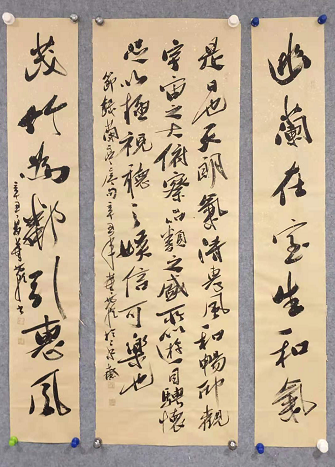 幽蘭在室生和氣
是日也天朗氣清惠風和暢仰觀
宇宙之大俯察品類之盛所以遊目騁懷
足以極視聽之娛信可樂也
節錄蘭亭序句辛丑年
茂竹為鄰引惠風
辛丑